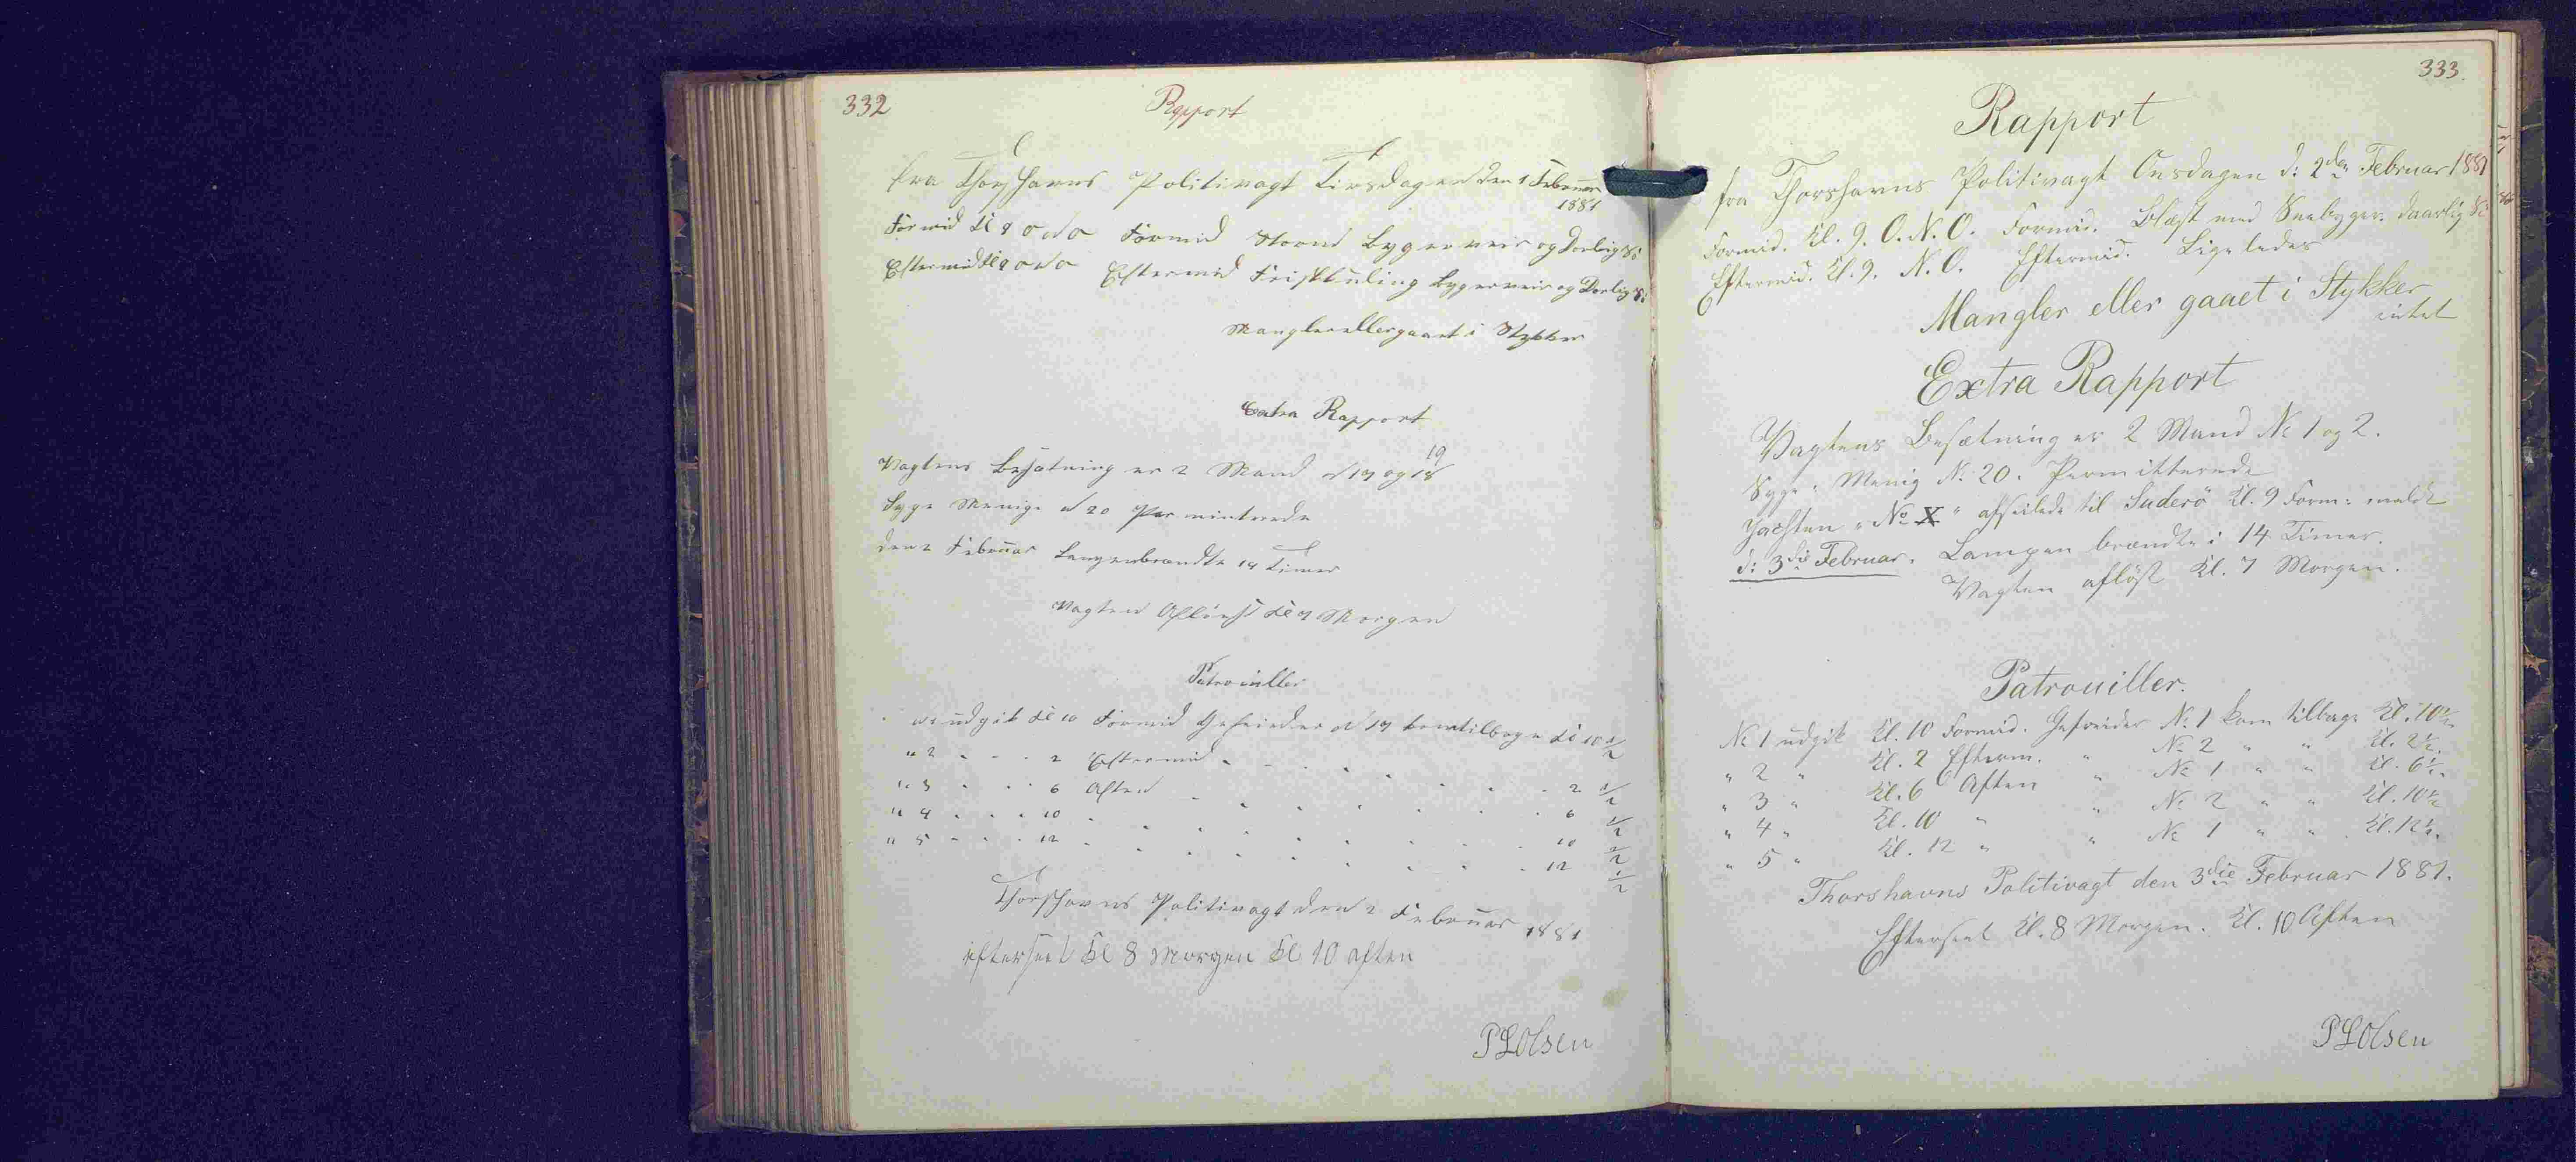 332
Rapport
fra Thorshavns Politivagt Tirsdagen den 1 Februar
1881
Formid Kl 9 O N O Formid Storm Bygerveir og Dorlig S:
Eftermid Kl 9 O N O Eftermid Friskkuling Bygerveir og Dorlig S:
Mangler eller gaaet i Stykker
Extra Rapport
19
Vagtens Besætning er 2 Mand N 17 og 18
Syge Menige N 20 Perminterede
den 2 Februar Lampen brendte 14 Timer
Vagten Afløest Kl 7 Morgen
Patrouiller
N 1 udgik Kl 10 Formid Gefreider N 17 kom tilbage Kl 10 1/2
" 2 " " " 2 Eftermid " " " " " " " 2 1/2
" 3 " " " 6 Aften " " " " " " " 6 1/2
" 4 " " " 10 " " " " " " " " 10 1/2
" 5 " " " 12 " " " " " " " " 12 1/2
Thorshavns Politivagt den 2 Februar 1881
efterseet Kl 8 Morgen Kl 10 aften
PLOlsen
333.
Rapport
fra Thorshavns Politivagt Onsdagen d: 2den Februar 1881
Formid. Kl. 9. O.N.O. Formid. Blæst med Sneebyger. daarlig S:
Eftermid. Kl. 9. N.O. Eftermid. Ligeledes
Mangler eller gaaet i Stykker
intet
Extra Rapport
Vagtens Besætning er 2 Mand No 1 og 2.
Syge: Menig No 20. Permitterede
Jagten "No X" afseilede til Suderö Kl. 9 Form: meldt
d: 3die Februar. Lampen brændte i 14 Timer.
Vagten afløst Kl. 7 Morgen.
Patrouiller.
No 1 udgik Kl. 10 Formid. Gefreider No 1 kom tilbage Kl. 10 1/2
" 2 " Kl. 2 Efterm. " No 2 " " Kl. 2 1/2.
" 3 " Kl. 6 Aften " No 1 " " Kl. 6 1/2.
" 4 " Kl. 10 " " No 2 " " Kl. 10 1/2
" 5 " Kl. 12 " " No 1 " " Kl. 12 1/2.
Thorshavns Politivagt den 3die Februar 1881.
Efterseet Kl. 8 Morgen. Kl. 10 Aften
PLOlsen